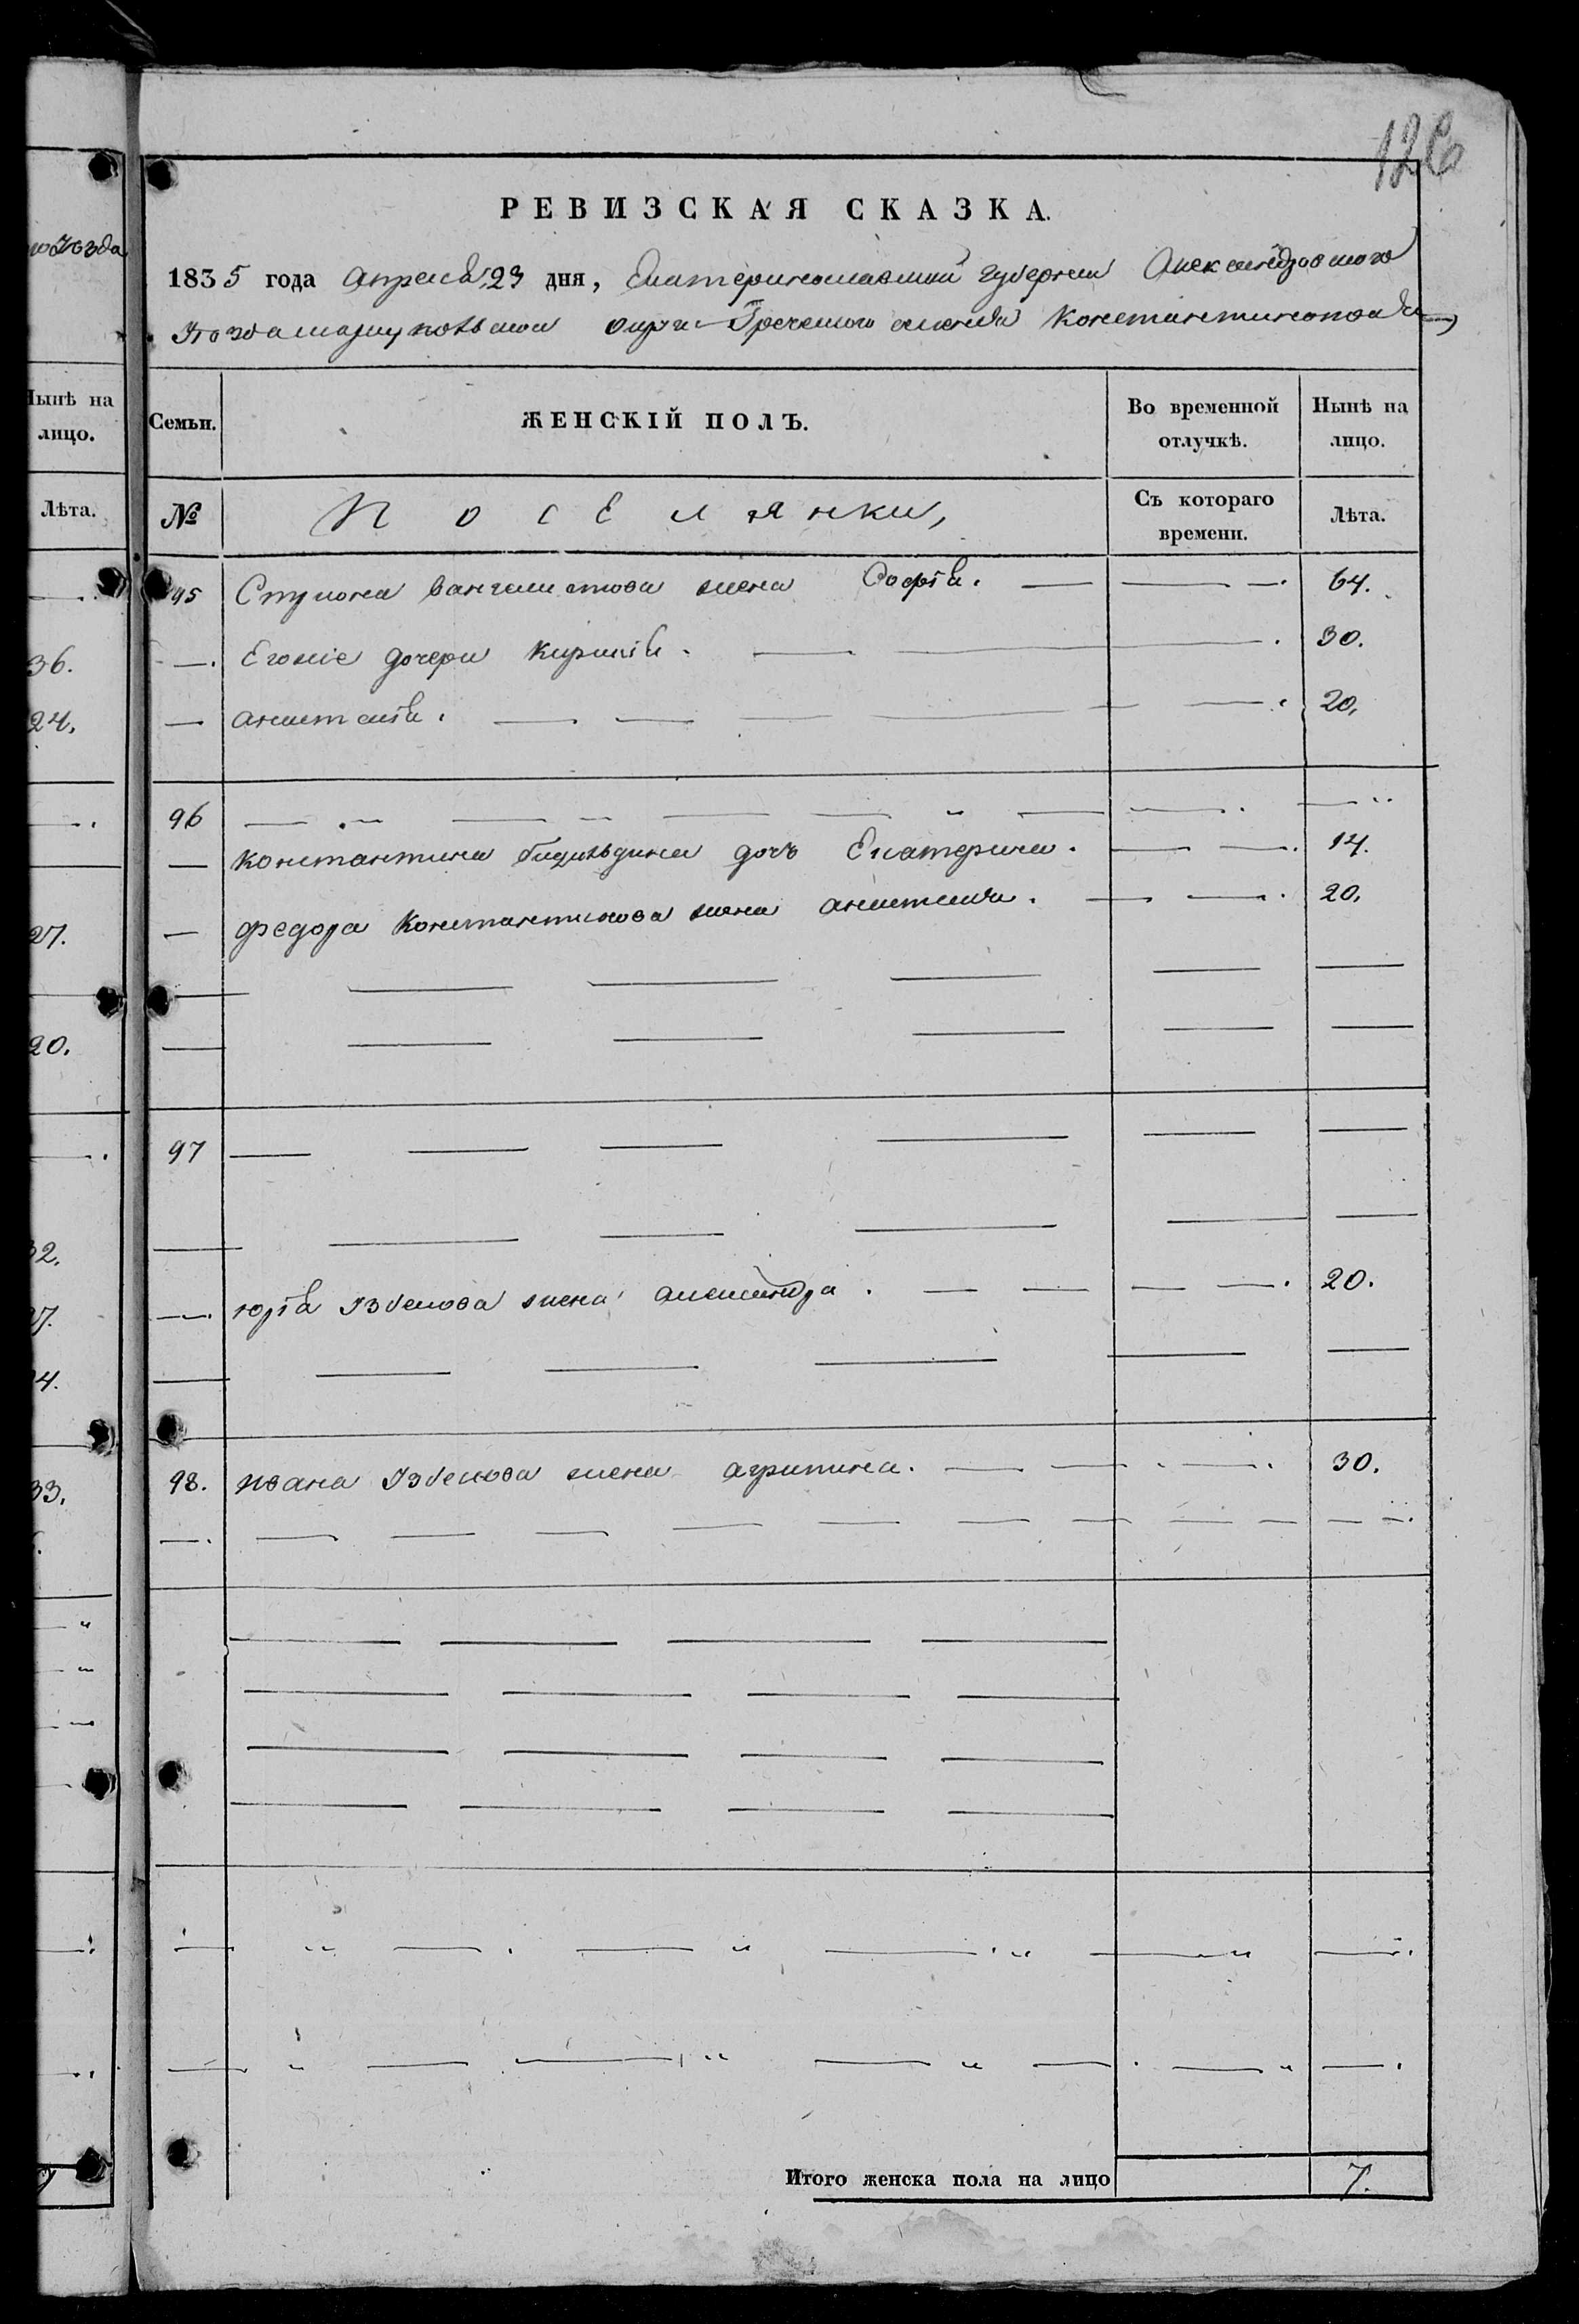 126
РЕВИЗСКАЯ СКАЗКА.
1835 года апреля 23 дня, Екатеринославской губернии Александровского
Уезда Мариупольскаго округа Греческого селения Константинополя
Семьи. ЖЕНСКІЙ ПОЛЪ. Во временной отлучкѣ. Нынѣ на лицо.
№ Поселянки, Съ котораго времени. Лѣта.
95 жена Софія. 64.
Егоже дочери Кирикія. 30.
анастасія. 20.
96
Константина дочь Екатерина. 14.
федора Константинова жена анастасія. 20.
97
юрія Узбекова жена александра. 20.
98. ивана Узбекова жена агрипина. 30.
Итого женска пола на лицо 7.
уезда
Нынѣ на лицо.
Лѣта.
36.
24.
27.
20.
32.
33.